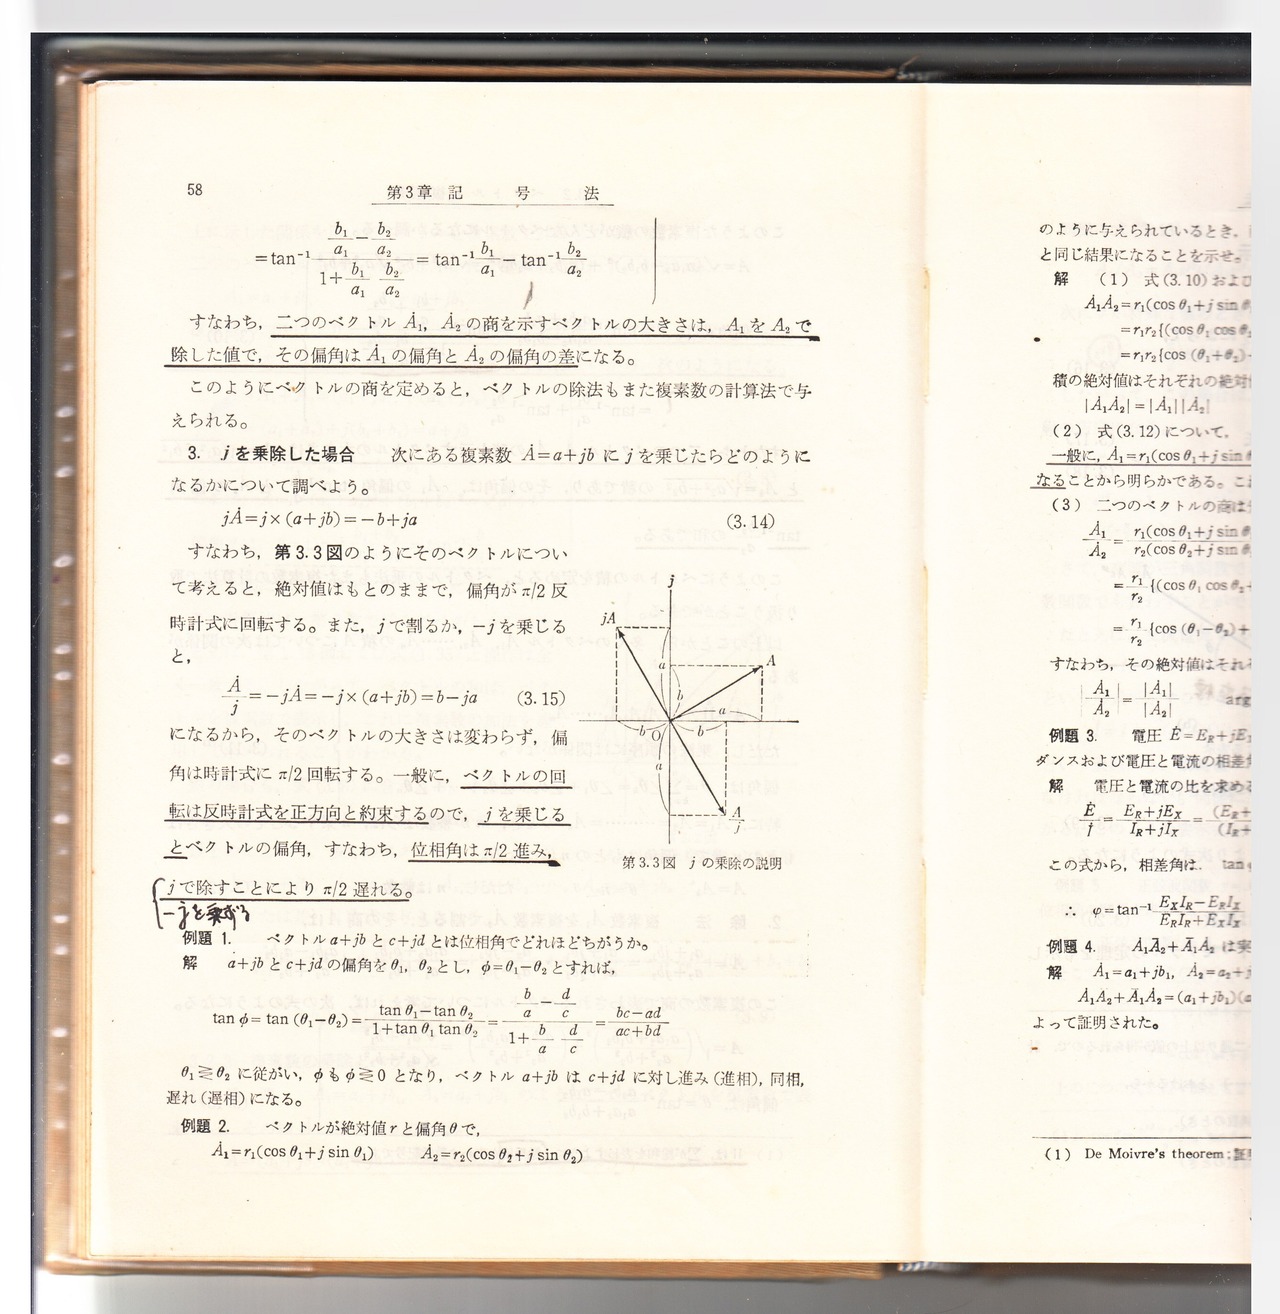 58
第3章 記 号 法
=tan⁻¹ (b₁/a₁ − b₂/a₂)/(1+ b₁/a₁ b₂/a₂) = tan⁻¹ b₁/a₁ − tan⁻¹ b₂/a₂
すなわち，二つのベクトル Ȧ₁，Ȧ₂ の商を示すベクトルの大きさは，A₁ を A₂ で
除した値で，その偏角は Ȧ₁ の偏角と Ȧ₂ の偏角の差になる。
このようにベクトルの商を定めると，ベクトルの除法もまた複素数の計算法で与
えられる。
3. jを乗除した場合 次にある複素数 Ȧ=a+jb に j を乗じたらどのように
なるかについて調べよう。
jȦ=j×(a+jb)=−b+ja (3.14)
すなわち，第3.3図のようにそのベクトルについ
て考えると，絶対値はもとのままで，偏角がπ/2 反
時計式に回転する。また，jで割るか，−jを乗じる
と，
Ȧ/j=−jȦ=−j×(a+jb)=b−ja (3.15)
になるから，そのベクトルの大きさは変わらず，偏
角は時計式に π/2 回転する。一般に，ベクトルの回
転は反時計式を正方向と約束するので，jを乗じる
とベクトルの偏角，すなわち，位相角はπ/2 進み，
jで除すことにより π/2 遅れる。
−jを乗ずる
j
jA
A
a
b
a
b
O
b
a
A/j
第3.3図 jの乗除の説明
例題 1. ベクトルa+jb と c+jd とは位相角でどれほどちがうか。
解 a+jb と c+jd の偏角を θ₁，θ₂ とし，φ=θ₁−θ₂ とすれば，
tan φ= tan (θ₁−θ₂)= (tan θ₁−tan θ₂)/(1+tan θ₁ tan θ₂) = (b/a − d/c)/(1+ b/a d/c) = (bc−ad)/(ac+bd)
θ₁≷θ₂ に従がい，φも φ≷0 となり，ベクトル a+jb は c+jd に対し進み(進相)，同相，
遅れ(遅相)になる。
例題 2. ベクトルが絶対値 r と偏角 θ で，
Ȧ₁=r₁(cos θ₁+j sin θ₁) Ȧ₂=r₂(cos θ₂+j sin θ₂)
のように与えられているとき，
と同じ結果になることを示せ。
解 (1) 式(3.10)およ
Ȧ₁Ȧ₂=r₁(cos θ₁+j sin
=r₁r₂{(cos θ₁ cos
=r₁r₂{cos (θ₁+θ₂)
積の絶対値はそれぞれの絶対
|Ȧ₁Ȧ₂|=|Ȧ₁||Ȧ₂|
(2) 式(3.12)について，
一般に，Ȧ₁=r₁(cos θ₁+j sin
なることから明らかである。こ
(3) 二つのベクトルの商は
Ȧ₁/Ȧ₂ = r₁(cos θ₁+j sin / r₂(cos θ₂+j sin
= r₁/r₂ {(cos θ₁ cos θ₂
= r₁/r₂ {cos (θ₁−θ₂)+
すなわち，その絶対値はそれぞ
|Ȧ₁/Ȧ₂| = |Ȧ₁|/|Ȧ₂| arg
例題 3. 電圧 Ė=E_R+jE
ダンスおよび電圧と電流の相差
解 電圧と電流の比を求め
Ė/İ = (E_R+jE_X)/(I_R+jI_X) = (E_R+ / (I_R+
この式から，相差角は， tan
∴ φ=tan⁻¹ (E_X I_R−E_R I_X)/(E_R I_R+E_X I_X)
例題 4. A₁Ā₂+Ā₁A₂ は実
解 Ȧ₁=a₁+jb₁，Ȧ₂=a₂+j
Ȧ₁Ā₂+Ā₁Ȧ₂=(a₁+jb₁)(a
よって証明された。
(1) De Moivre's theorem: